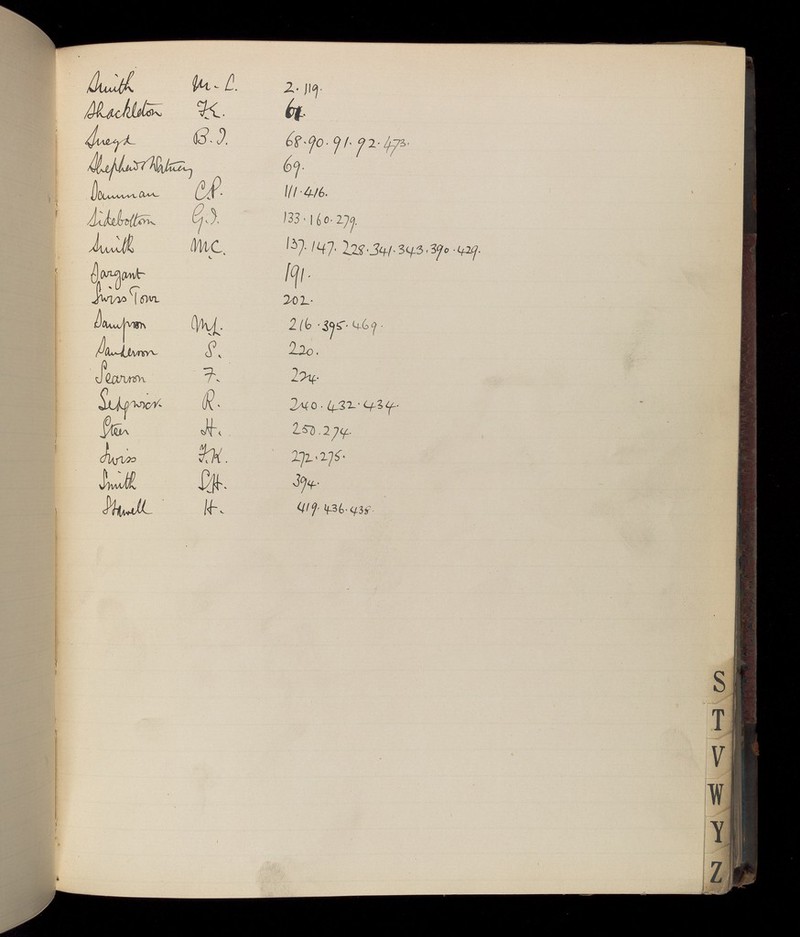 Smith M. L. 2. 119.
Shackleton F.K. 61.
Sneyd B.I. 68. 90. 91. 92. 473.
Shepherd & Watney 69.
C.P. 111. 416.
Sidebottom G.I. 133. 160. 279.
Smith M.C. 137. 147. 228. 341. 343. 390. 429.
Sargant 191.
Swiss Tour 202.
Sampson M.L. 216. 395. 469.
Sanderson S. 220.
Searson F. 224.
Sedgwick R. 240. 432. 434.
Steer H. 250. 274.
Swiss F.K. 272. 275.
Smith S.H. 394.
Stowell H. 419. 436. 438
S
T
V
W
Y
Z